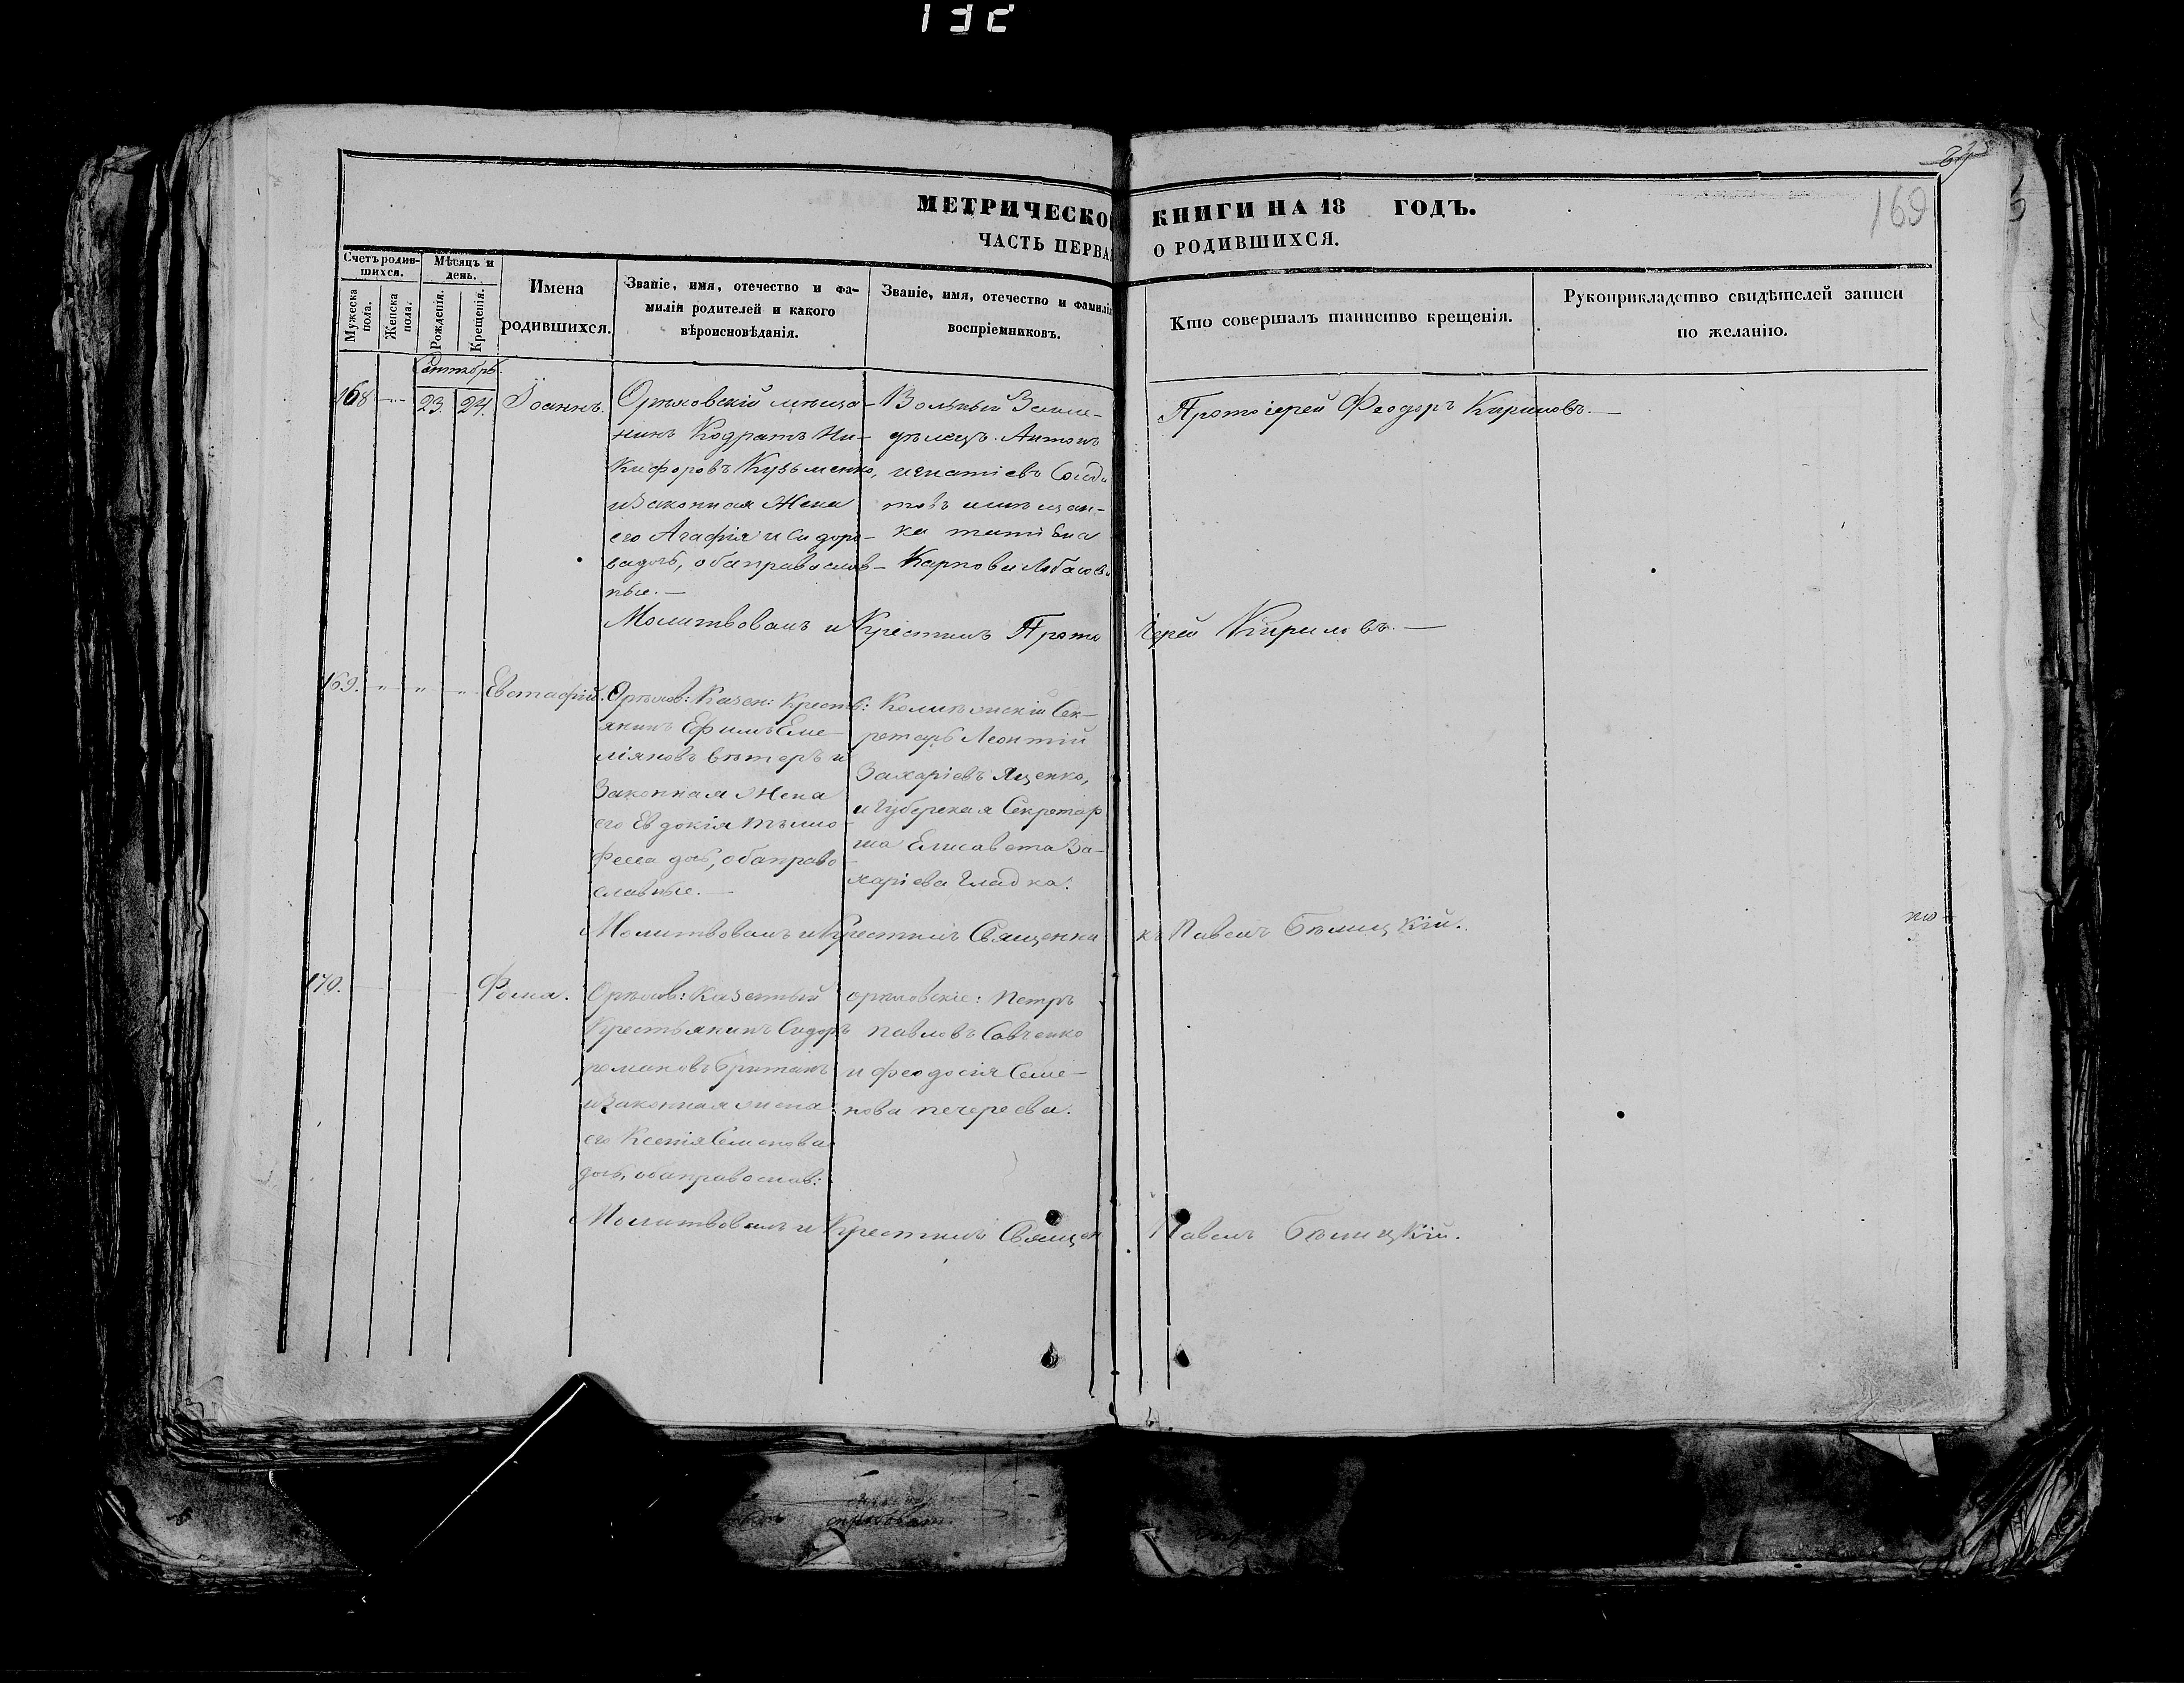 132
169
МЕТРИЧЕСКО КНИГИ НА 18 ГОДЪ.
ЧАСТЬ ПЕРВА О РОДИВШИХСЯ.
Счетъ родив-
шихся.
Мужеска
пола.
Женска
пола.
Мѣсяцъ и
день.
Рожденія.
Крещенія.
Имена
родившихся.
Званіе, имя, отечество и фа-
миліи родителей и какого
вѣроисповѣданія.
Званіе, имя, отечество и фамилі
воспріемниковъ.
Кто совершалъ таинство крещенія.
Рукоприкладство свидѣтелей записи
по желанію.
Сентябрь.
168 23. 24. Іоаннъ.
Орѣховскій мѣща-
нинъ Кодратъ Ни-
кифоровъ Кузьменко,
и законная жена
его Агафія Исидоро-
ва дочь, оба православ-
ные.
Вольный Земле-
дѣлецъ Антонъ
Игнатіевъ
ка
Карпова
Протоіерей Феодоръ Кириловъ.
Молитвовалъ и Крестилъ Прото іерей Кириловъ.
169. " " " Евстафій.
Орѣхов: Казен: Крестъ:
янинъ Ефимъ Еме-
ліяновъ Вѣтеръ и
Законная Жена
его Евдокія
дочь, оба право
славные.
Коллежскій Сек-
ретарь Леонтій
Захаріевъ Яценко,
и Губерская Секретар
ша Елисавета За-
харіева Гладка.
Молитвовалъ и Крестилъ Священни къ Павелъ Бѣлицкій.
170. Фома.
Орѣхов: Казенный
Крестьянинъ Сидоръ
Романовъ Британъ
и Законная жена
его Ксенія Семенова
дочь, оба православ:
орѣховскіе: Петръ
Павловъ Савченко
и Феодосія Семе-
нова Печерева.
Молитвовалъ и Крестилъ Священ Павелъ Бѣлицкій.